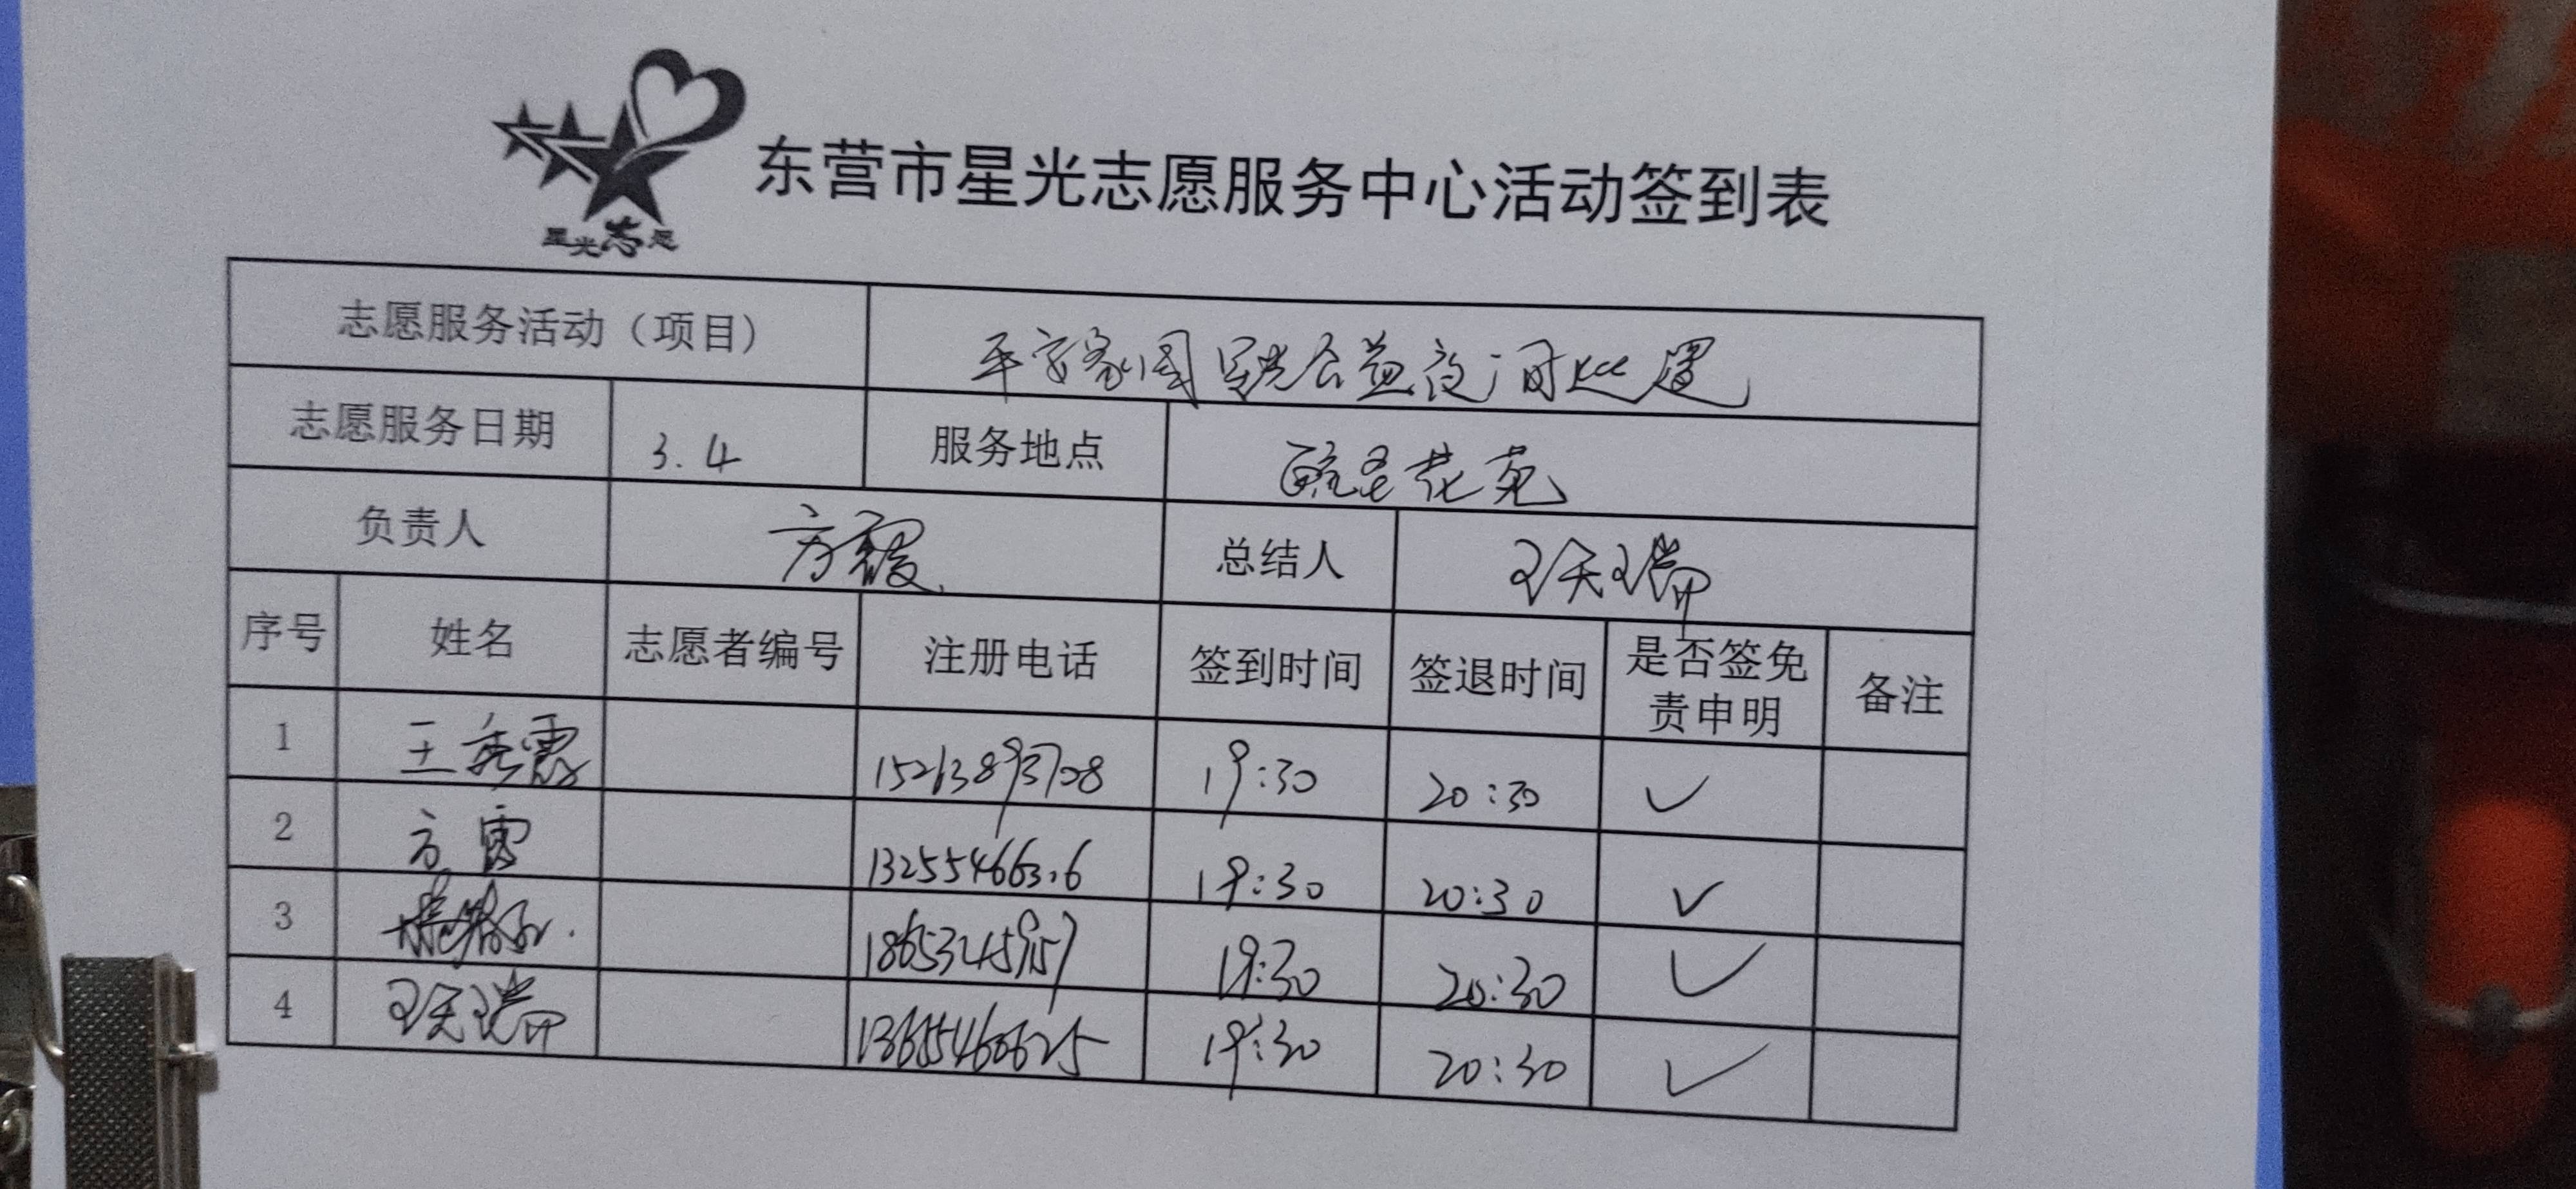 星光志愿
东营市星光志愿服务中心活动签到表
志愿服务活动（项目） 平安家园 星光公益夜间巡逻
志愿服务日期 3.4 服务地点 花苑
负责人 方霞 总结人 王天瑞
序号 姓名 志愿者编号 注册电话 签到时间 签退时间 是否签免责申明 备注
1 王秀霞 15263893708 19:30 20:30 ✓
2 方霞 19:30 20:30 ✓
3 19:30 20:30 ✓
4 王天瑞 13685460625 19:30 20:30 ✓